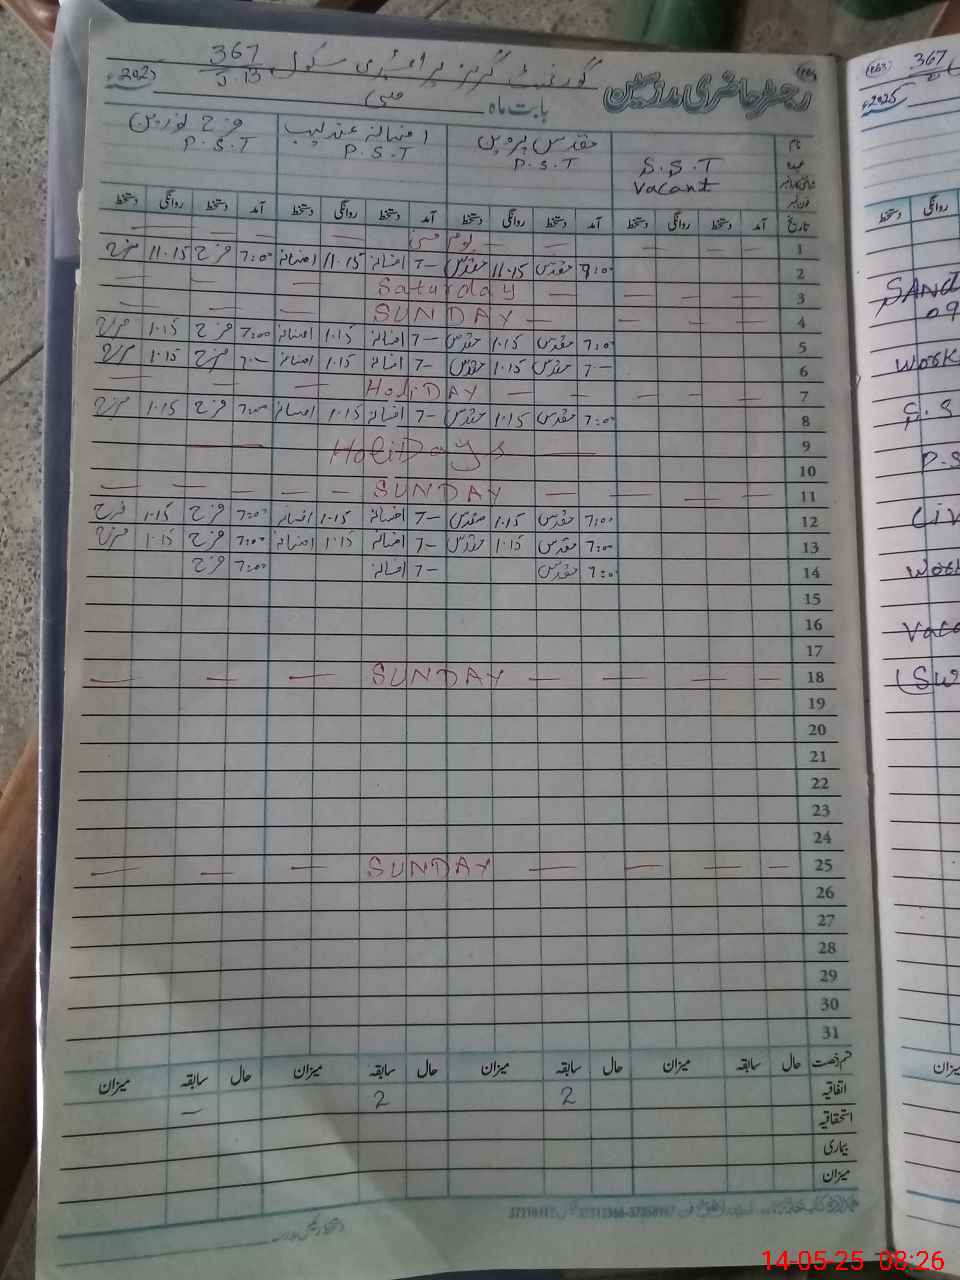 رجسٹر حاضری مدرسین گورنمنٹ گرلز پرائمری سکول 367 J.B
بابت ماہ مئی 2025ء
نام مقدس پروین افسانہ عندلیب فرح نورین
عہدہ S.S.T P.S.T P.S.T P.S.T
Vacant
تاریخ آمد دستخط روانگی دستخط آمد دستخط روانگی دستخط آمد دستخط روانگی دستخط آمد دستخط روانگی دستخط
1 — — — — — یوم مئی — — —
2 7:00 مقدس 11.15 مقدس 7- افسانہ 11.15 افسانہ 7:00 فرح 11.15 فرح
3 — — — — Saturday — — —
4 — — — — SUNDAY — — —
5 7:00 مقدس 1.15 مقدس 7- افسانہ 1.15 افسانہ 7:00 فرح 1.15 فرح
6 7- مقدس 1.15 مقدس 7- افسانہ 1.15 افسانہ 7- فرح 1.15 فرح
7 — — — — — HoliDAY — — —
8 7:00 مقدس 1.15 مقدس 7- افسانہ 1.15 افسانہ 7:00 فرح 1.15 فرح
9 — HoliDays — —
10
11 — — — — SUNDAY — — — — —
12 7:00 مقدس 1.15 مقدس 7- افسانہ 1.15 افسانہ 7:00 فرح 1.15 فرح
13 7:00 مقدس 1.15 مقدس 7- افسانہ 1.15 افسانہ 7:00 فرح 1.15 فرح
14 7:00 مقدس 7- افسانہ 7:00 فرح
15
16
17
18 — — — — SUNDAY — — —
19
20
21
22
23
24
25 — — — — SUNDAY — — —
26
27
28
29
30
31
قسم رخصت حال سابقہ میزان حال سابقہ میزان حال سابقہ میزان حال سابقہ میزان
اتفاقیہ 2 2 —
استحقاقیہ
بیماری
میزان
367
2025ء
دستخط روانگی
SAND
09
Work
S.S
P.S
Civ
Work
Vaca
(SW
میزان
14-05-25 08:26